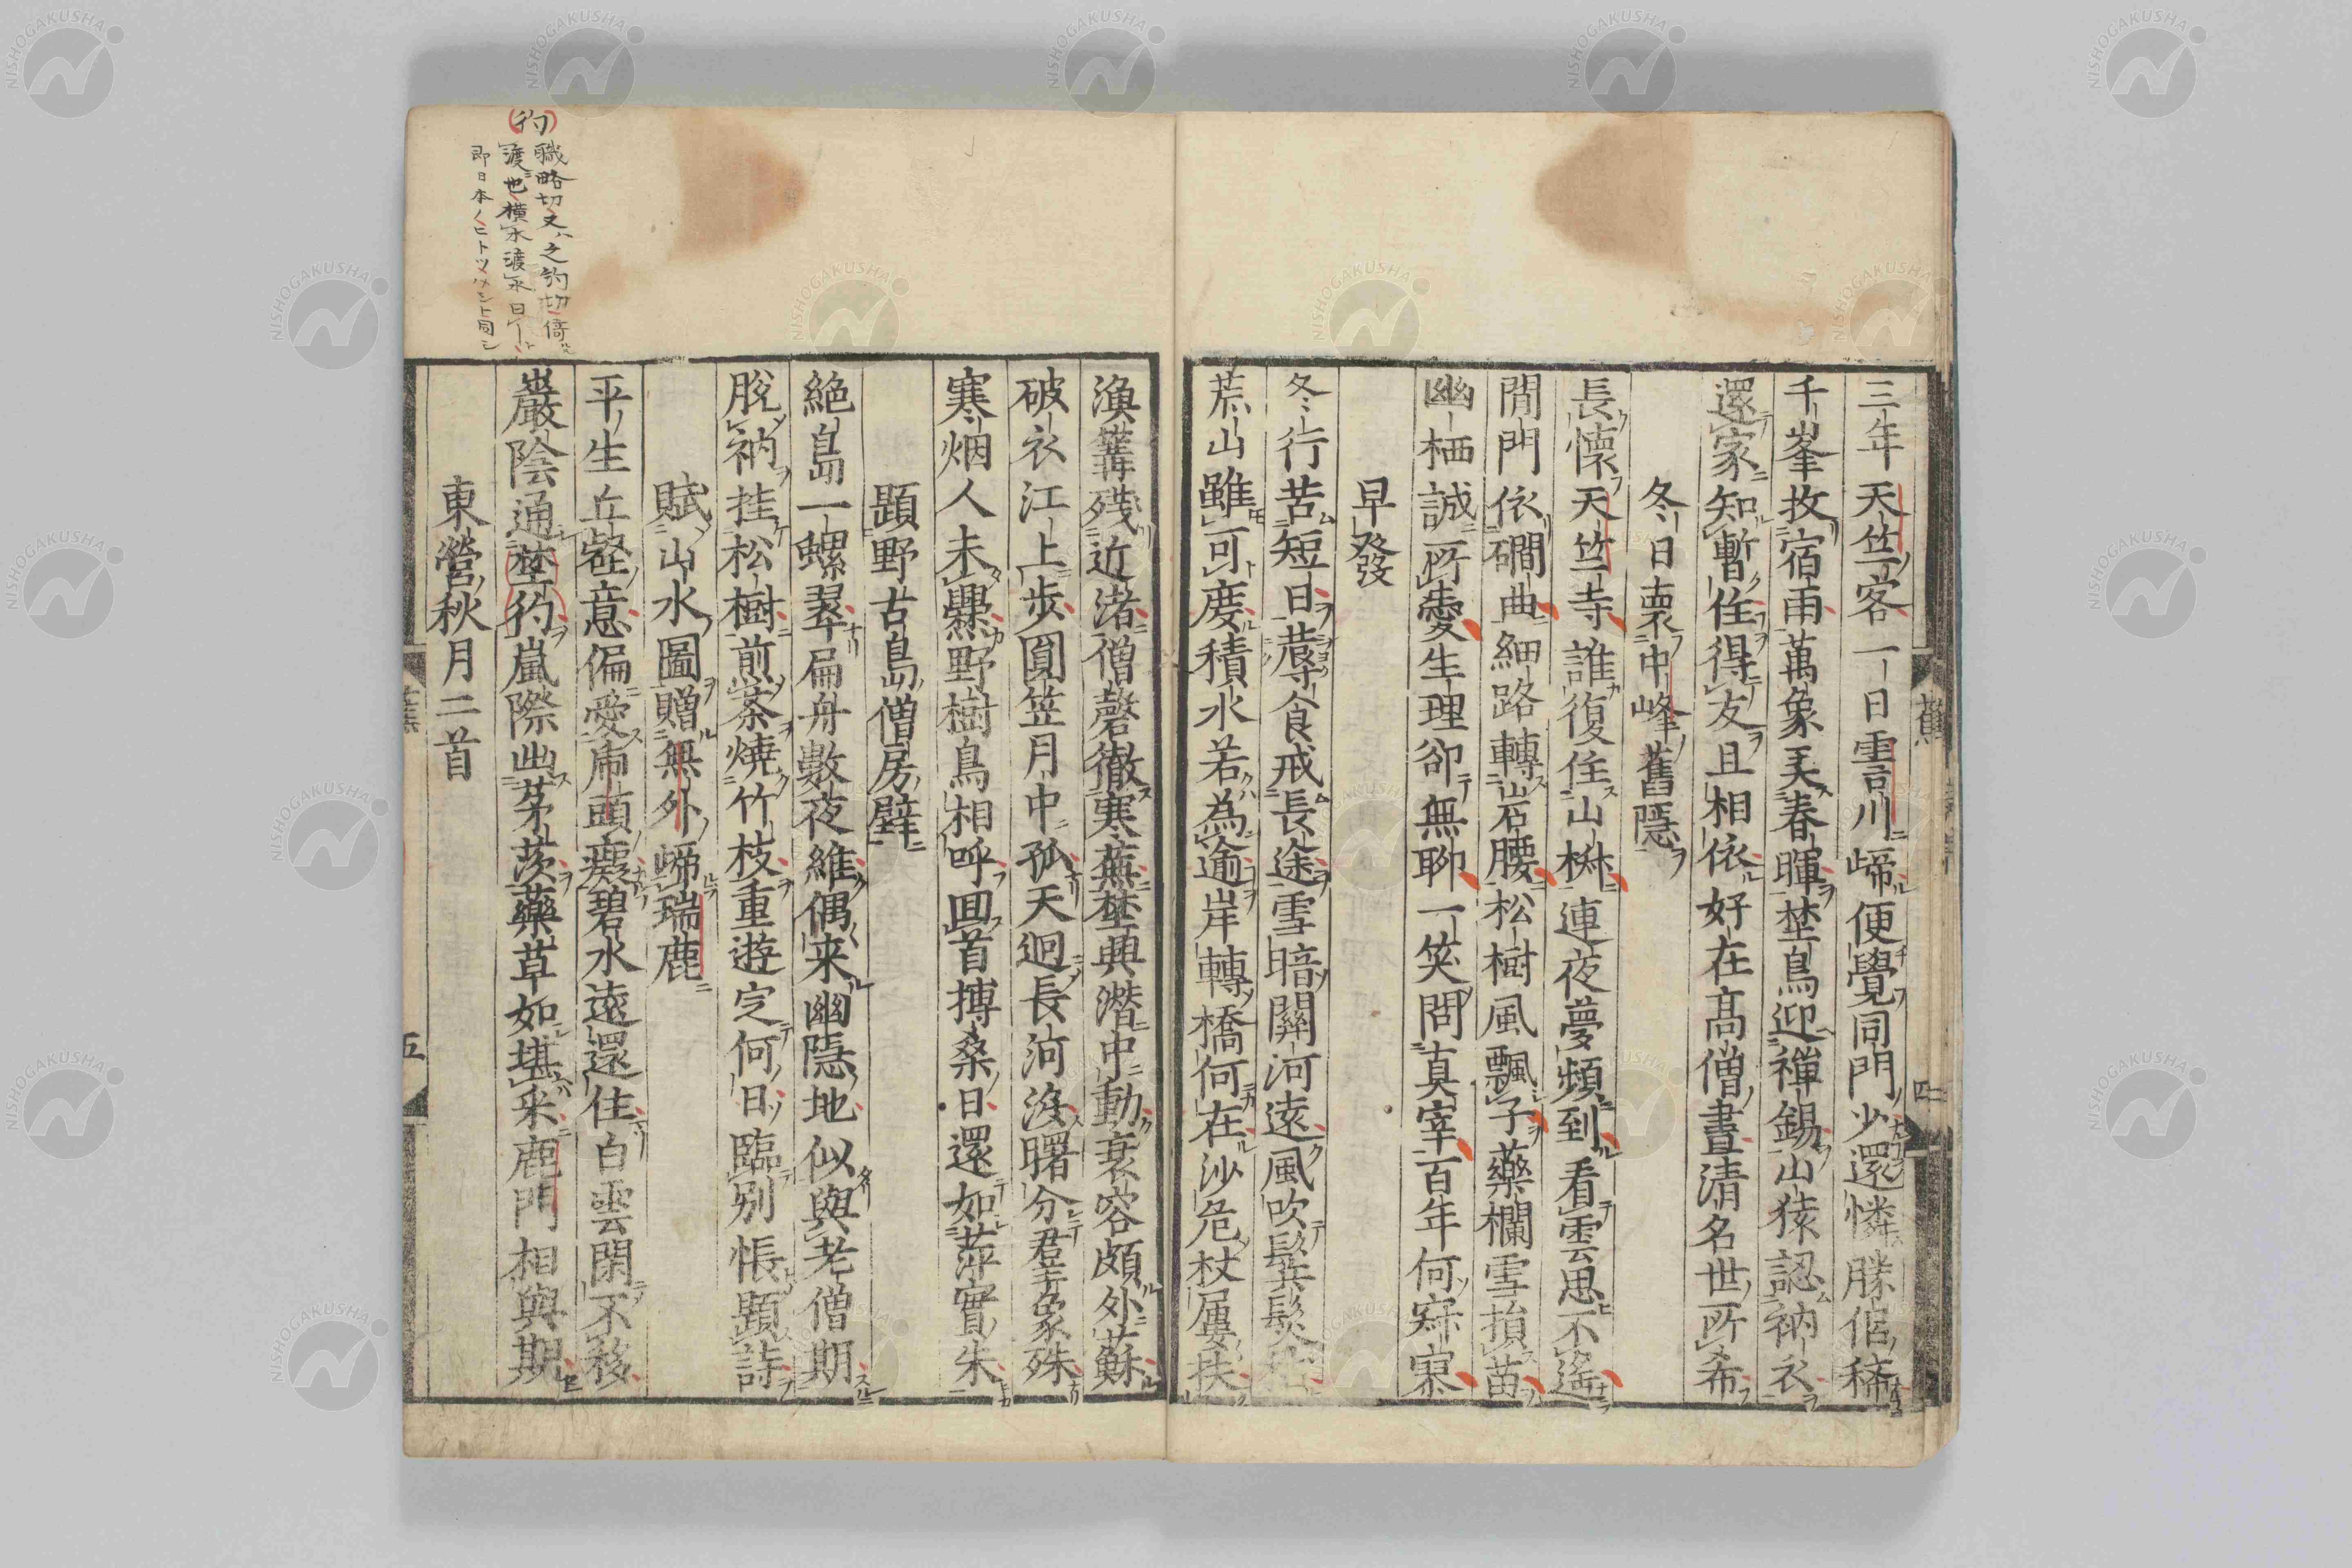 三年天竺客一日雲川歸便覺同門少還憐勝侶稀
千峯收宿雨萬象美春暉埜鳥迎禪錫山猿認衲衣
還家知暫住得友且相依好在高僧晝清名世所希
冬日懷中峰舊隱
長懷天竺寺誰復住山椒連夜夢頻到看雲思不遙
閒門依磵曲細路轉岩腰松樹風飄子藥欄雪損苗
幽栖誠所愛生理卻無聊一笑問真宰百年何寂寞
早發
冬行苦短日蓐食戒長途雪暗關河遠風吹鬢髮
荒山雖可度積水若為逾岸轉橋何在沙危杖屢扶
蕉
四
漁篝殘近渚僧磬徹寒蕪埜興潛中動衰容頗外蘇
破衣江上步圓笠月中孤天迥長河沒曙分羣象殊
寒烟人未爨野樹鳥相呼回首搏桑日還如萍實朱
題野古島僧房壁
絶島一螺翠扁舟數夜維偶来幽隱地似與老僧期
脫衲挂松樹煎茶燒竹枝重遊定何日臨別悵題詩
賦山水圖贈無外歸瑞鹿
平生丘壑意偏愛帋頭癡碧水遠還住白雲閑不移
巖陰通埜彴嵐際出茅茨藥草如堪采鹿門相與期
東營秋月二首
蕉
五
彴
職略切又ハ之約切倚
渡也橫水渡水曰
即日本ノヒトツハシト同シ
NISHOGAKUSHA